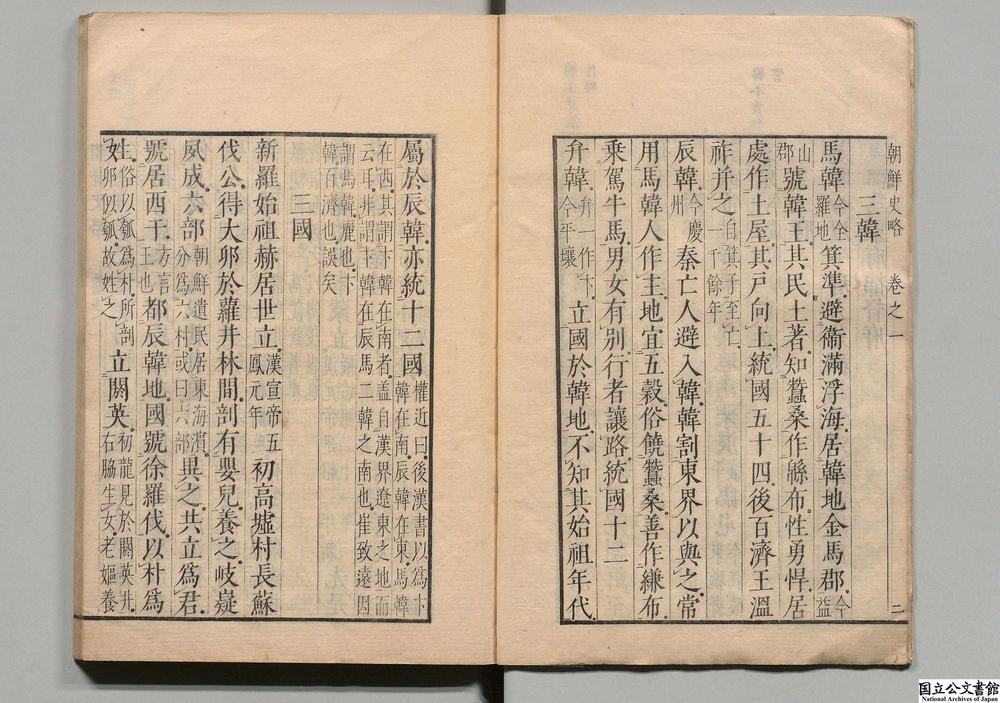 朝鮮史略　卷之一　二
三韓
馬韓今全羅地箕準避衞滿浮海居韓地金馬郡今益
山郡號韓王其民土著知蠶桑作緜布性勇悍居
處作土屋其戸向上統國五十四後百濟王溫
祚并之自箕子至亡一千餘年
辰韓今慶州秦亡人避入韓韓割東界以與之常
用馬韓人作主地宜五穀俗饒蠶桑善作縑布
乘駕牛馬男女有別行者讓路統國十二
弁韓弁一作卞今平壤立國於韓地不知其始祖年代
屬於辰韓亦統十二國權近曰後漢書以爲卞韓在南辰韓在東馬韓
在西其謂卞韓在南者盖自漢界遼東之地而云耳非謂卞韓在辰馬二韓之南也崔致遠因
謂馬韓麗也卞韓百濟也誤矣
三國
新羅始祖赫居世立漢宣帝五鳳元年初高墟村長蘇
伐公得大卵於蘿井林間剖有嬰兒養之岐嶷
夙成六部朝鮮遺民居東海濱分爲六村或曰六部異之共立爲君
號居西干方言王也都辰韓地國號徐羅伐以朴爲
姓俗以瓠爲朴所剖之卵似瓠故姓之立閼英初龍見於閼英井右脇生女老嫗養
国立公文書館
National Archives of Japan